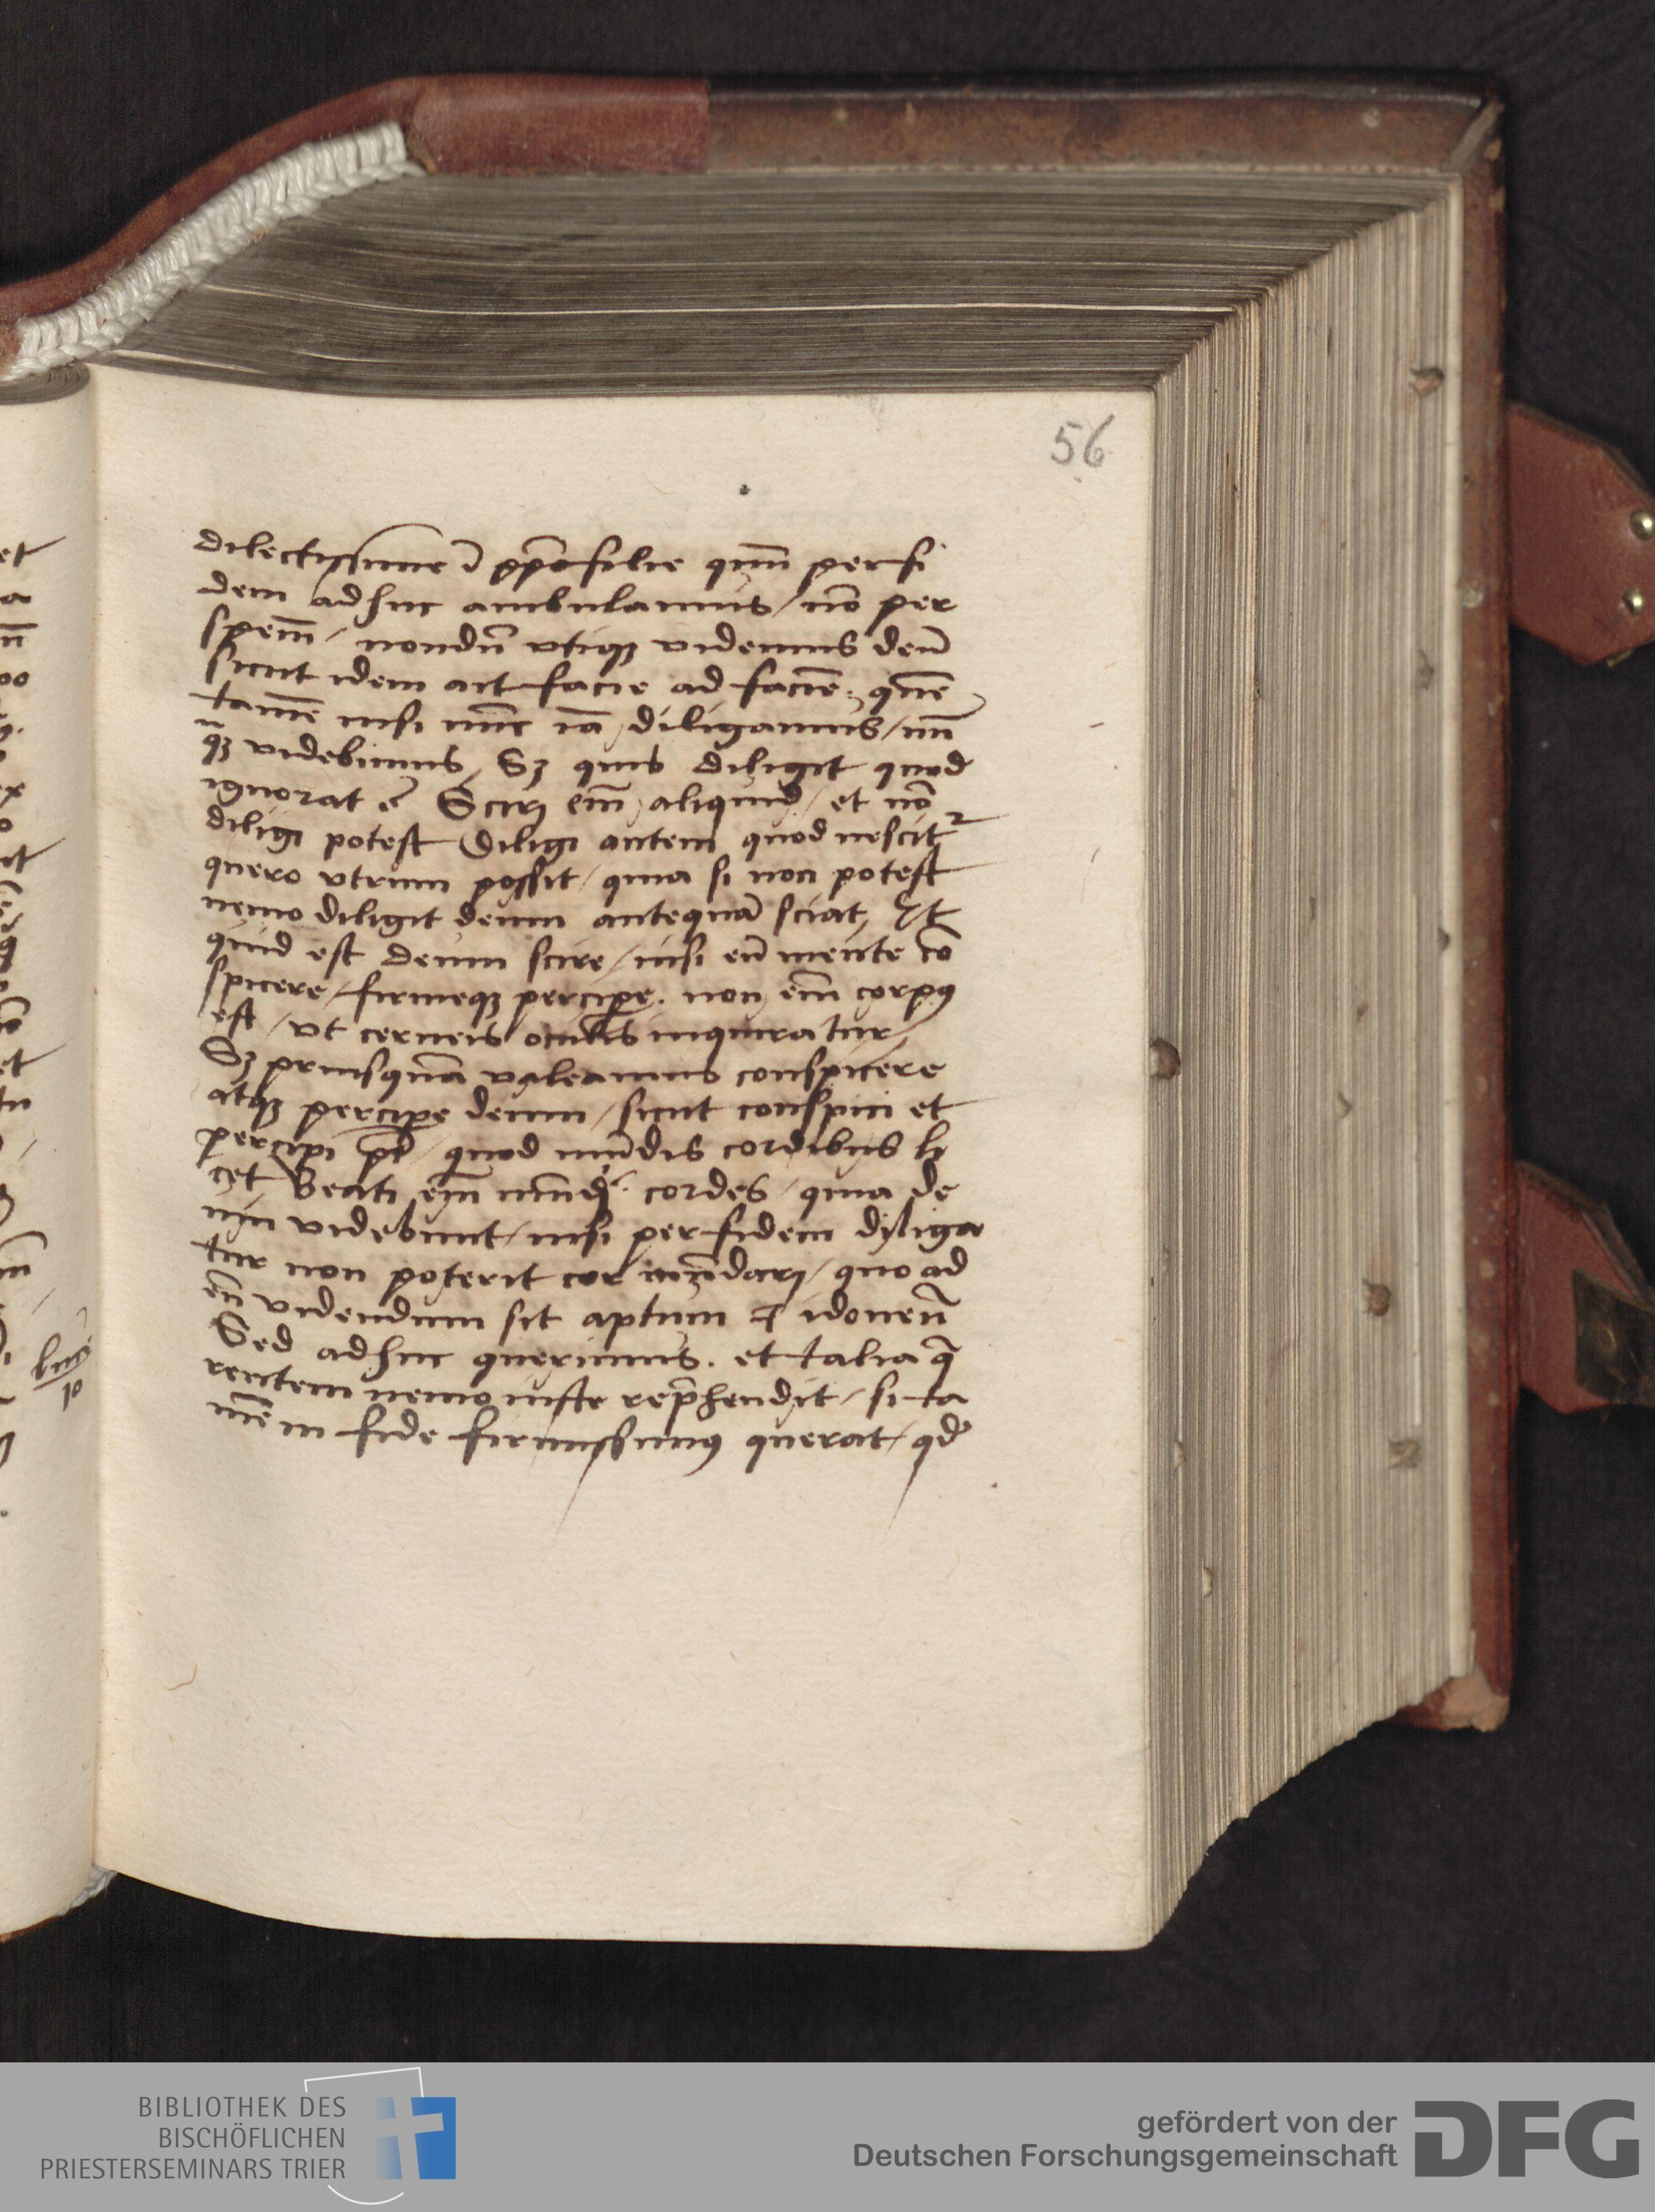 56
dilectissime ī ppō filie quīn per fi
dem adhuc ambulamus / nō per
spem̄ / nondū vtiqꝫ videmus deū
sicut idem ait facie ad faciē : quē
tamē nisi nūc iā diligamus / nū
qꝫ videbimus / Sꝫ quis diligit quod
ignorat ē Sciri em̄ aliquid / et nō
diligi potest Diligi autem quod nescit²
quero vtrum possit / quia si non potest
nemo diligit deum antequā sciat / Et
quid est deum scire / nisi eū mente cō
spicere / firmeqꝫ percipe . non em̄ corpꝰ
est / vt carneis oculis inquiratur /
Sꝫ priusquā valeamus conspicere
atqꝫ percipe deum / sicut conspici et
percipi pt̄ / quod mūdis cordibus li
cet Beati em̄ mundi cordes / quia de
um videbunt / nisi per fidem diliga
tur non poterit cor mūdari / quo ad
eū videndum sit aptum & idoneū
Sed adhuc querimus . et talia q̄
rentem nemo iuste rep̄hendit / si ta
mē in fide firmissimꝰ querat / qd̄
et
luc
10
BIBLIOTHEK DES
BISCHÖFLICHEN
PRIESTERSEMINARS TRIER
gefördert von der
Deutschen Forschungsgemeinschaft
DFG